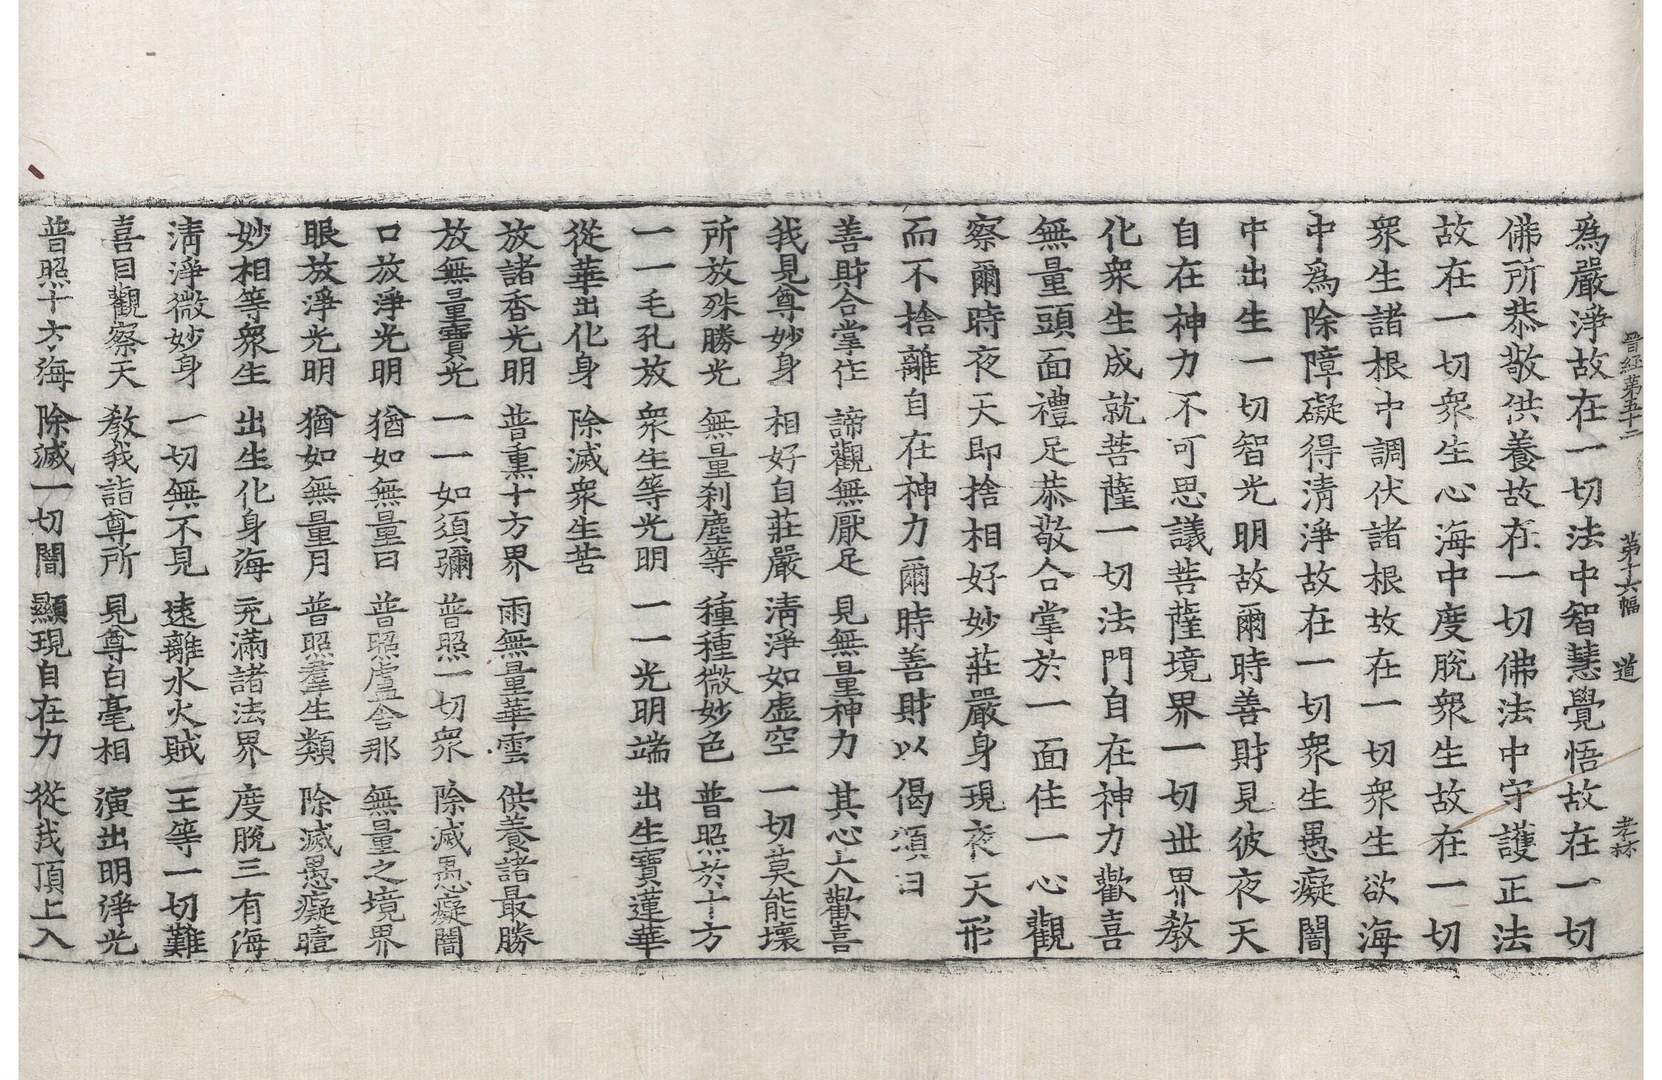 晉經第五十二 第十六幅 道
為嚴淨故在一切法中智慧覺悟故在一切
佛所恭敬供養故在一切佛法中守護正法
故在一切眾生心海中度脫眾生故在一切
眾生諸根中調伏諸根故在一切眾生欲海
中為除障礙得清淨故在一切眾生愚癡闇
中出生一切智光明故爾時善財見彼夜天
自在神力不可思議菩薩境界一切世界教
化眾生成就菩薩一切法門自在神力歡喜
無量頭面禮足恭敬合掌於一面住一心觀
察爾時夜天即捨相好妙莊嚴身現夜天形
而不捨離自在神力爾時善財以偈頌曰
善財合掌住 諦觀無厭足 見無量神力 其心大歡喜
我見尊妙身 相好自莊嚴 清淨如虛空 一切莫能壞
所放殊勝光 無量剎塵等 種種微妙色 普照於十方
一一毛孔放 眾生等光明 一一光明端 出生寶蓮華
從華出化身 除滅眾生苦
放諸香光明 普熏十方界 雨無量華雲 供養諸最勝
放無量寶光 一一如須彌 普照一切眾 除滅愚癡闇
口放淨光明 猶如無量日 普照盧舍那 無量之境界
眼放淨光明 猶如無量月 普照羣生類 除滅愚癡曀
妙相等眾生 出生化身海 充滿諸法界 度脫三有海
清淨微妙身 一切無不見 遠離水火賊 王等一切難
喜目觀察天 教我詣尊所 見尊白毫相 演出明淨光
普照十方海 除滅一切闇 顯現自在力 從我頂上入